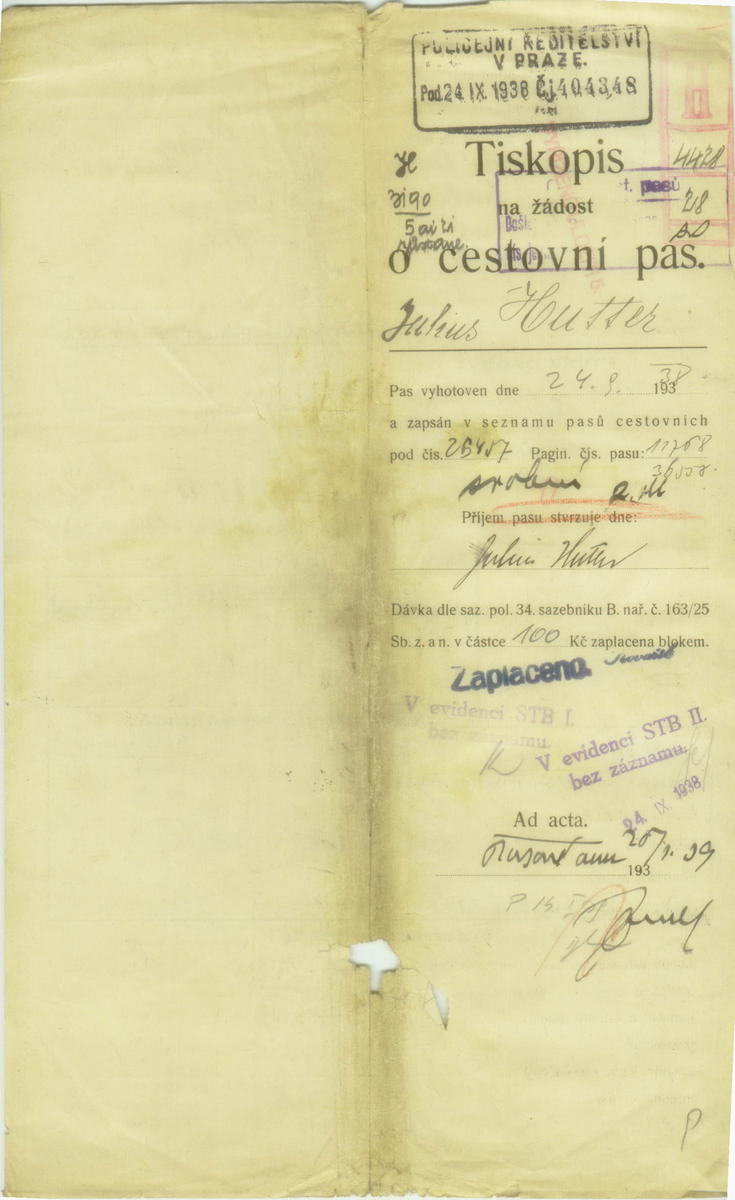 POLICEJNÍ ŘEDITELSTVÍ
V PRAZE.
Pod. 24 IX. 1938 Čj. 404348
Tiskopis
4428
3190
t. pasů
na žádost
28
Došl
o cestovní pas.
Julius Hutter
Pas vyhotoven dne 24. 9. 1938
a zapsán v seznamu pasů cestovních
pod čís. 26457 Pagin. čís. pasu: 11768
Příjem pasu stvrzuje dne:
Julius Hutter
Dávka dle saz. pol. 34. sazebníku B. nař. č. 163/25
Sb. z. a n. v částce 100 Kč zaplacena blokem.
Zaplaceno.
V evidenci STB I.
bez záznamu.
V evidenci STB II.
bez záznamu.
24. IX. 1938
Ad acta.
193
P